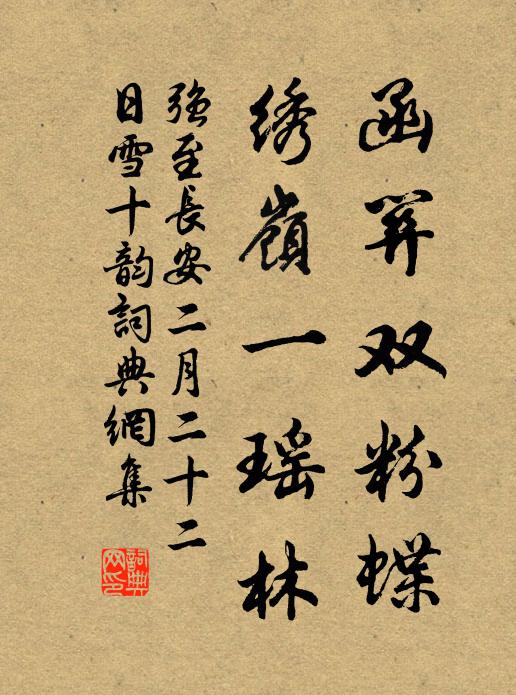 函關双粉蝶
绣嶺一瑶林
强至長安二月二十二
日雪十韵詞典網集
詞典网印